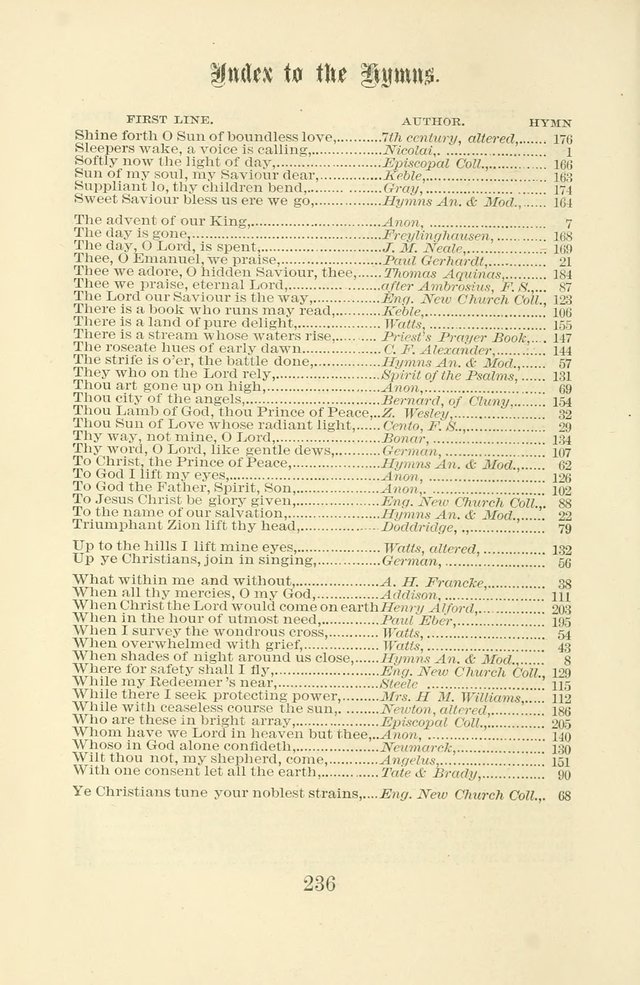 Index to the Hymns.
FIRST LINE. AUTHOR. HYMN
Shine forth O Sun of boundless love,..........7th century, altered,...... 176
Sleepers wake, a voice is calling,..............Nicolai,. ....................... 1
Softly now the light of day,......................Episcopal Coll.,............ 166
Sun of my soul, my Saviour dear,.............Keble,........................... 163
Suppliant lo, thy children bend,....... .......Gray,............................ 174
Sweet Saviour bless us ere we go,.............Hymns An. & Mod.,...... 164
The advent of our King,...........................Anon, .......................... 7
The day is gone,.....................................Freylinghausen, ........... 168
The day, O Lord, is spent,........................J. M. Neale,.................. 169
Thee, O Emanuel, we praise,....................Paul Gerhardt,.............. 21
Thee we adore, O hidden Saviour, thee,......Thomas Aquinas,.......... 184
Thee we praise, eternal Lord,...................after Ambrosius, F. S.,... 87
The Lord our Saviour is the way,..............Eng. New Church Coll., 123
There is a book who runs may read,..........Keble,........................... 106
There is a land of pure delight,.................Watts,........................... 155
There is a stream whose waters rise,...... ....Priest's Prayer Book,.... 147
The roseate hues of early dawn................C. F. Alexander,............ 144
The strife is o'er, the battle done,..............Hymns An. & Mod.,...... 57
They who on the Lord rely,......................Spirit of the Psalms,...... 131
Thou art gone up on high,.......................Anon,........................... 69
Thou city of the angels,...........................Bernard, of Cluny,........ 154
Thou Lamb of God, thou Prince of Peace,..Z. Wesley,.................... 32
Thou Sun of Love whose radiant light,.....Cento, F. S.,.................. 29
Thy way, not mine, O Lord,.....................Bonar,.......................... 134
Thy word, O Lord, like gentle dews,..........German,....................... 107
To Christ, the Prince of Peace,.................Hymns An. & Mod.,...... 62
To God I lift my eyes,.............................Anon, .......................... 126
To God the Father, Spirit, Son,.................Anon,. ......................... 102
To Jesus Christ be glory given,................Eng. New Church Coll.,. 88
To the name of our salvation,...................Hymns An. & Mod.,...... 22
Triumphant Zion lift thy head,.................Doddridge, .,................ 79
Up to the hills I lift mine eyes,.................Watts, altered, .............. 132
Up ye Christians, join in singing,..............German,....................... 56
What within me and without,...................A. H. Francke,.............. 38
When all thy mercies, O my God,..............Addison, ...................... 111
When Christ the Lord would come on earth Henry Alford,............... 203
When in the hour of utmost need,.............Paul Eber,.................... 195
When I survey the wondrous cross,...........Watts,........................... 54
When overwhelmed with grief,.................Watts, .......................... 43
When shades of night around us close,......Hymns An. & Mod....... 8
Where for safety shall I fly,.....................Eng. New Church Coll., 129
While my Redeemer's near,.....................Steele ........................... 115
While there I seek protecting power,.........Mrs. H M. Williams,..... 112
While with ceaseless course the sun,. ........Newton, altered,............ 186
Who are these in bright array,..................Episcopal Coll.,............ 205
Whom have we Lord in heaven but thee,..Anon, .......................... 140
Whoso in God alone confideth,.................Neumarck,................... 130
Wilt thou not, my shepherd, come,............Angelus,....................... 151
With one consent let all the earth,............Tate & Brady,............... 90
Ye Christians tune your noblest strains,....Eng. New Church Coll.,. 68
236